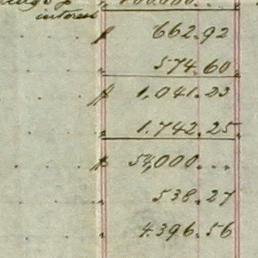 interest
$ 662.92
" 574.60
$ 1,041.23
" 1.742.25
$ 54,000...
" 538.27
" 4.396.56